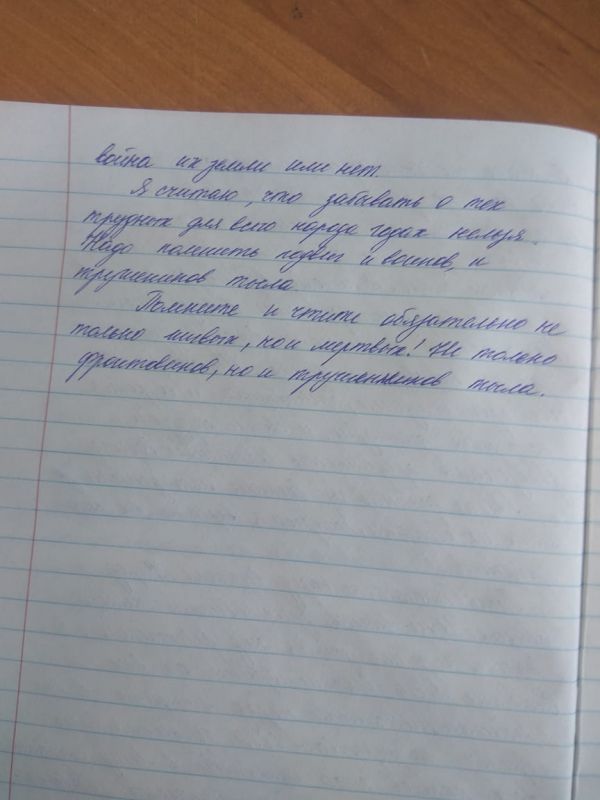 война их земли или нет.
Я считаю, что забывать о тех
трудных для всего народа годах нельзя.
Надо помнить подвиг и воинов, и
тружеников тыла.
Помните и чтите обязательно не
только живых, но и мертвых! Не только
фронтовиков, но и тружеников тыла.